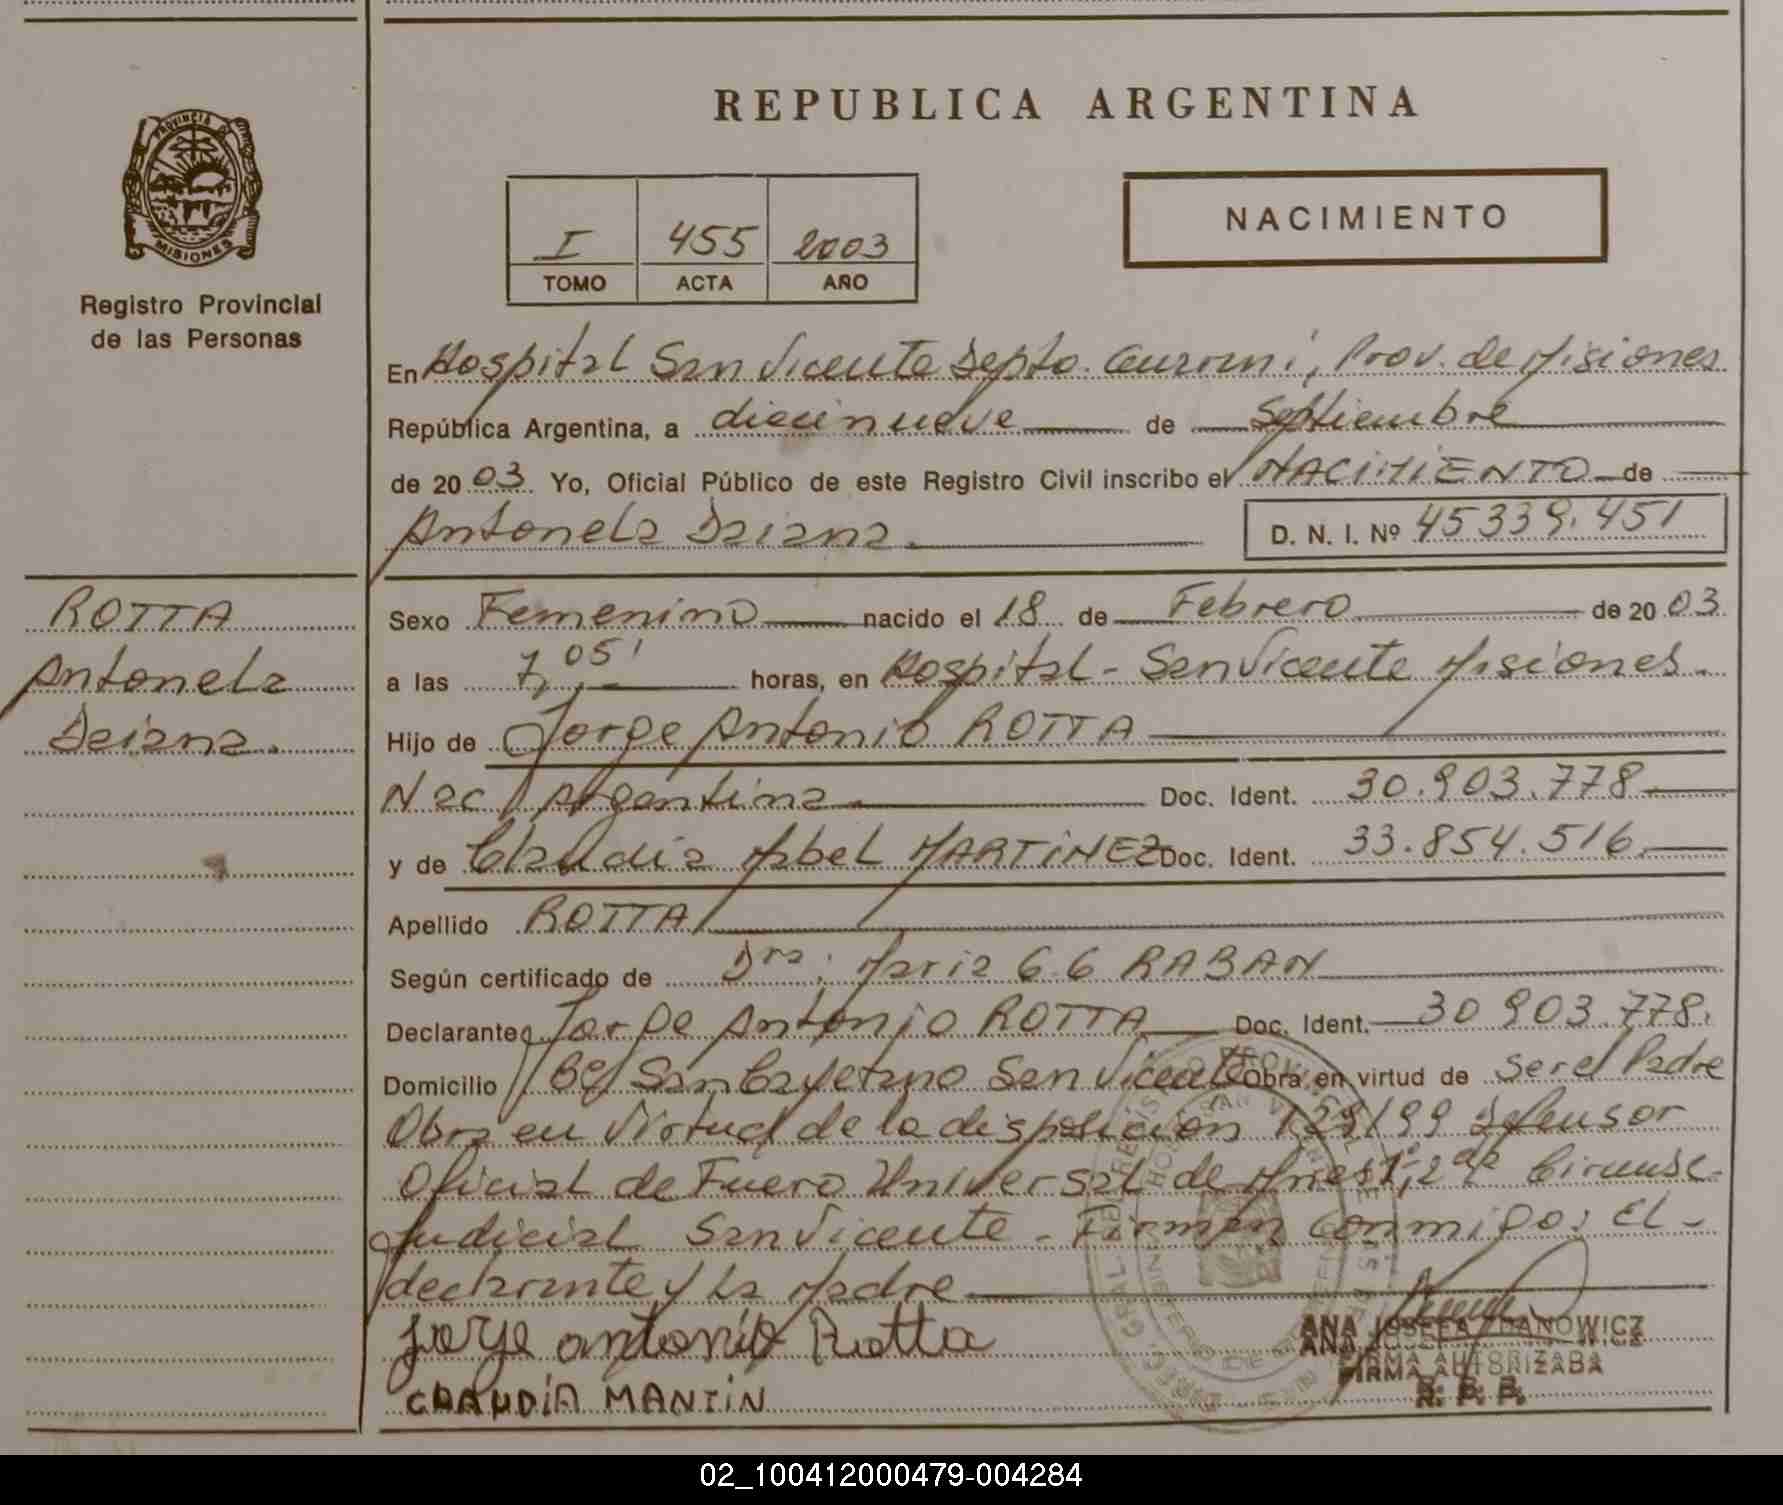 REPUBLICA ARGENTINA
PROVINCIA DE
MISIONES
Registro Provincial
de las Personas
I 455 2003
TOMO ACTA AÑO
NACIMIENTO
En Hospital San Vicente Depto. Guarani, Prov. de Misiones
República Argentina, a diecinueve de Septiembre
de 20 03 Yo, Oficial Público de este Registro Civil inscribo el NACIMIENTO de
Antonela Daiana. D. N. I. Nº 45339.451
ROTTA
Antonela
Daiana.
Sexo Femenino nacido el 18 de Febrero de 20 03
a las 7,05' horas, en Hospital - San Vicente Misiones.
Hijo de Jorge Antonio ROTTA
Nac Argentina Doc. Ident. 30.903.778
y de Claudia Mabel MARTINEZ Doc. Ident. 33.854.516.
Apellido ROTTA
Según certificado de Dra: Maria G.G RABAN
Declarante Jorge Antonio ROTTA Doc. Ident. 30 903.778.
Domicilio Bº San Cayetano San Vicente Obra en virtud de ser el Padre
Obra en Virtud de la disposicion /99 Defensor
Oficial de Fuero Universal de 2da Circunsc-
Judicial San Vicente - Firman conmigo: El -
declarante y la Madre
Jorge antonio Rotta
CLAUDIA MANTIN
ANA JOSEFA
FIRMA AUTORIZADA
02_100412000479-004284